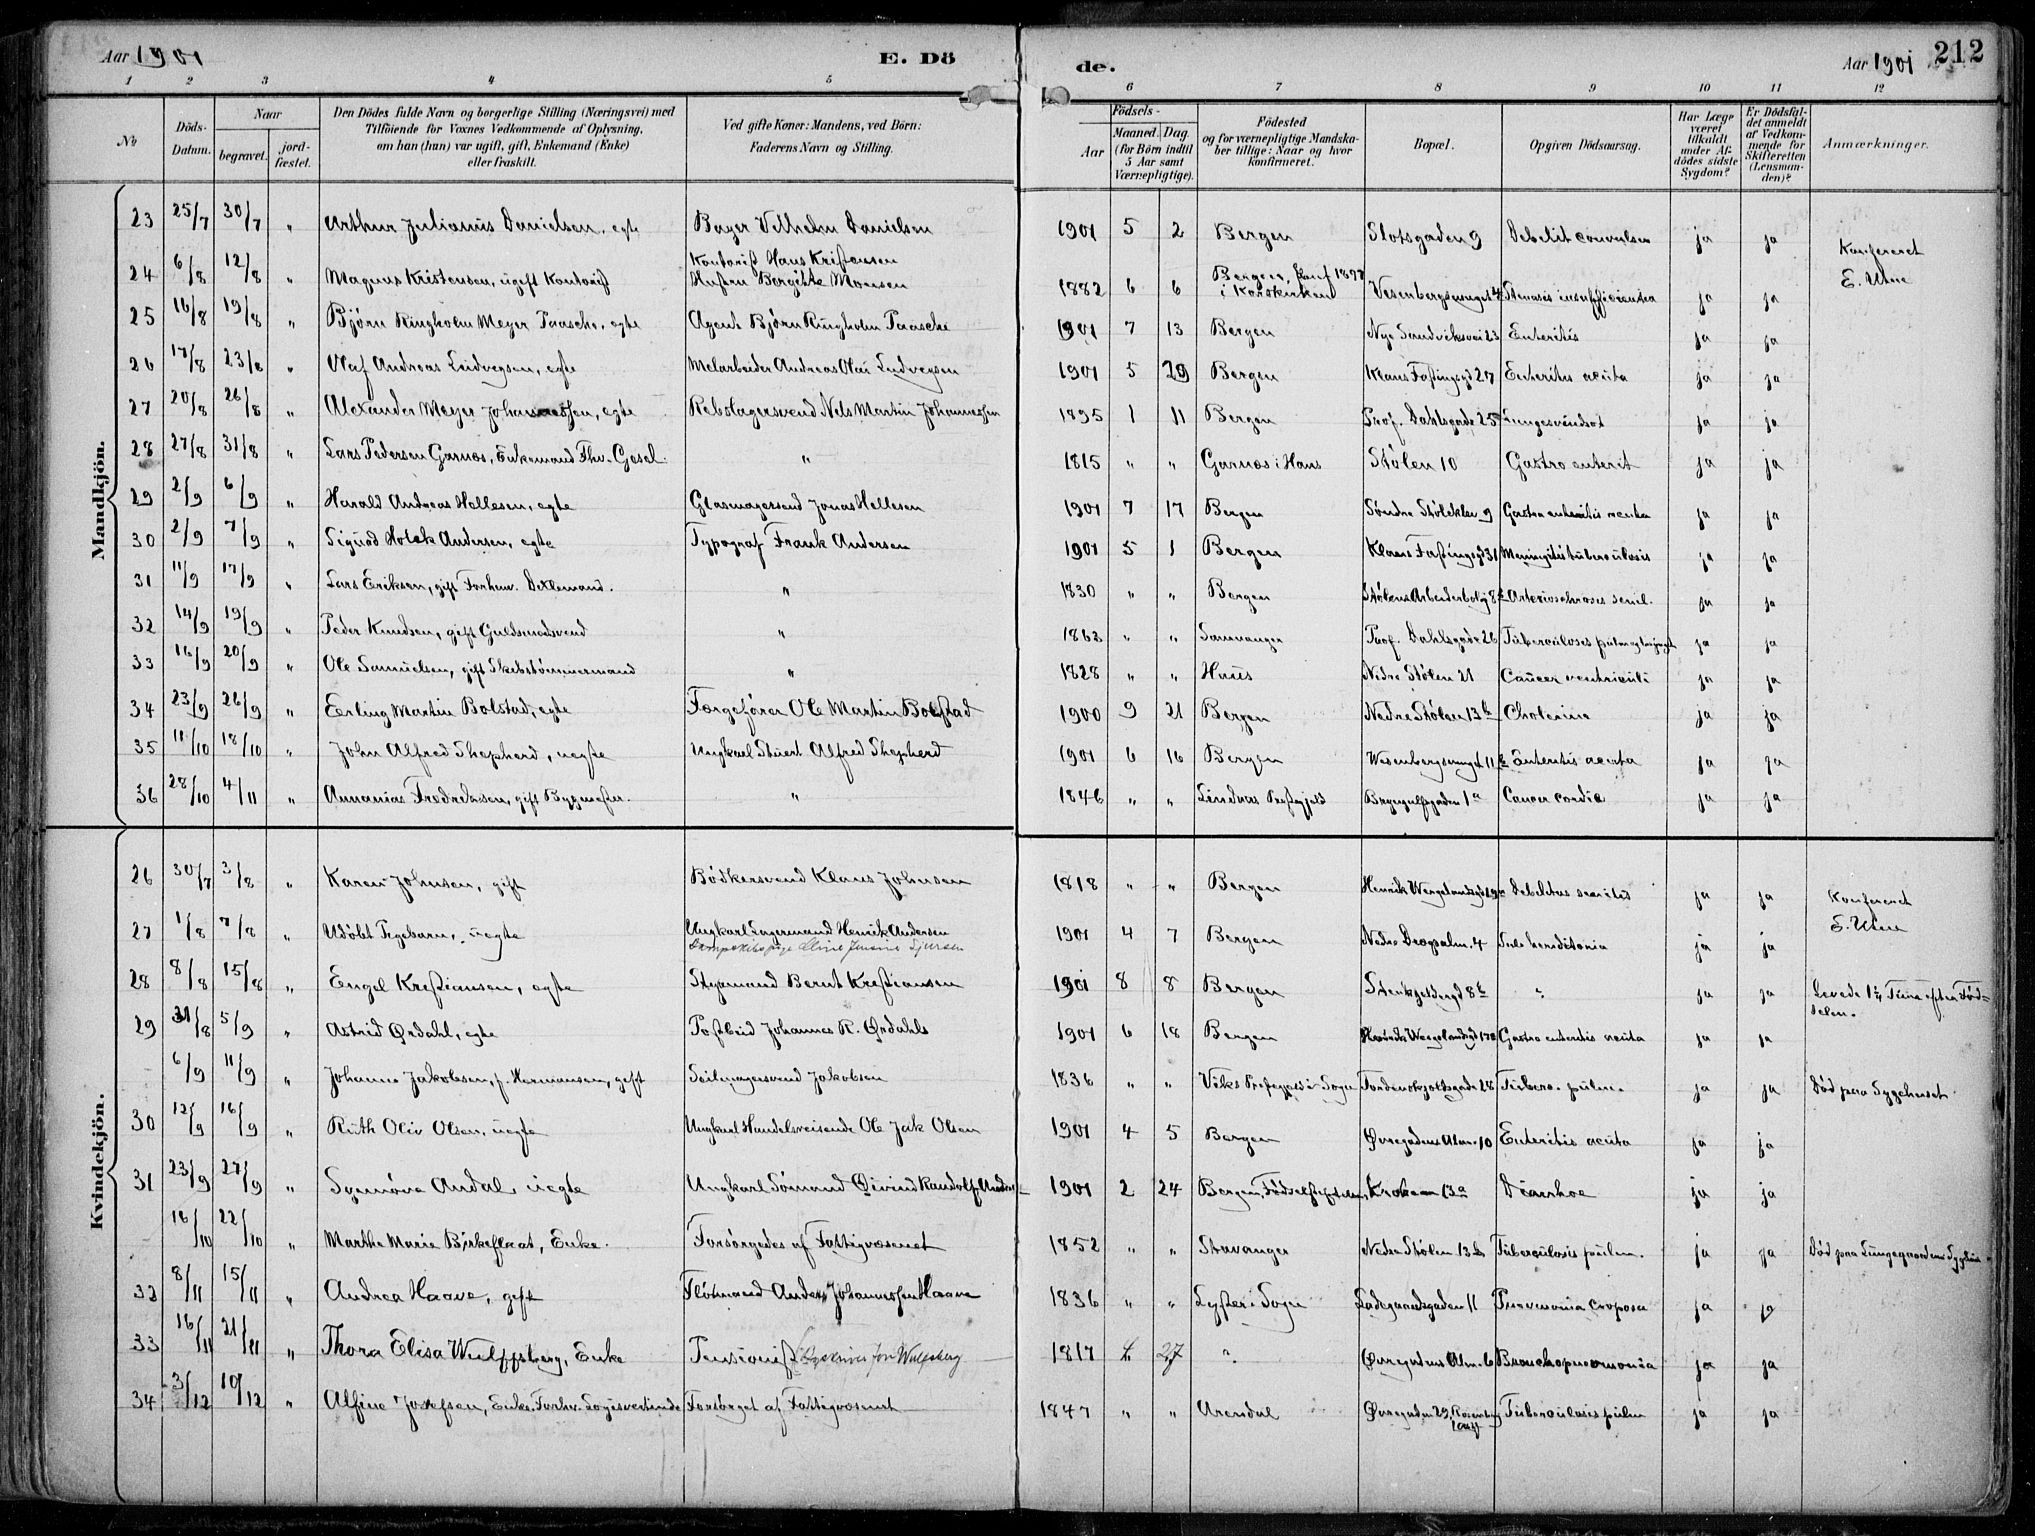 Aar 1901
E. Dö
de.
Aar 1901
212
1 2 3 4 5 6 7 8 9 10 11 12
No
Döds-Datum.
Naar
begravet.
jord-fæstet.
Den Dödes fulde Navn og borgerlige Stilling (Næringsvei) med
Tilföiende for Voxnes Vedkommende af Oplysning,
om han (hun) var ugift, gift, Enkemand (Enke)
eller fraskilt.
Ved gifte Koner: Mandens, ved Börn:
Faderens Navn og Stilling.
Födsels-
Aar
Maaned. Dag.
(for Börn indtil
5 Aar samt
Værnepligtige).
Födested
og for værnepligtige Mandska-
ber tillige: Naar og hvor
konfirmeret.
Bopæl.
Opgiven Dödsaarsag.
Har Læge
været
tilkaldt
under Af-
dödes sidste
Sygdom?
Er Dödsfal-
det anmeldt
af Vedkom-
mende for
Skifteretten
(Lensman-
den)?
Anmærkninger.
Mandkjön.
23 25/7 30/7 " Arthur Julianus Danielsen, egte Bager Vilhelm Danielsen 1901 5 2 Bergen Slotsgaden 9 Debilit convulsen ja ja Konfereret
E. Utne
24 6/8 12/8 " Magnus Kristensen, ugift Kontorist Kontorist Hans Kristensen
Hustru Bergitte Monsen 1882 6 6 Bergen, konf 1897
i Korskirken Stenosis insufficientia ja ja
25 16/8 19/8 " Bjørn Ringholm Meyer Paasche, egte Agent Bjørn Ringholm Paasche 1901 7 13 Bergen Nye Sandviksvei 23 Enteritis ja ja
26 17/8 23/8 " Olaf Andreas Ludvegsen, egte Melarbeider Andreas Olai Ludvegsen 1901 5 29 Bergen Klaus Fastingsgd 27 Enteritis acuta ja ja
27 20/8 26/8 " Alexander Meyer Johannessen, egte Rebslagersvend Nels Martin Johannessen 1895 1 11 Bergen Prof. Dahlsgade 25 Lungesvindsot ja ja
28 27/8 31/8 " Lars Pedersen Garnæs, Enkemand Fhv. Gesel. " 1815 " " Garnæs i Hans Stølen 10 Gastro enterit ja ja
29 2/9 6/9 " Harald Andreas Hellesen, egte Glasmagersvend Jonas Hellesen 1901 7 17 Bergen Søndre Stølekleven 9 Gastro enteritis acuta ja ja
30 2/9 7/9 " Sigurd Holck Andersen, egte Typograf Frank Andersen 1901 5 1 Bergen Klaus Fastingsgd 31 Meningitis tuberculosis ja ja
31 11/9 17/9 " Lars Eriksen, gift Forhenv. " 1830 " " Bergen Arteriosclerosis senil. ja ja
32 14/9 19/9 " Peder Knudsen, gift Guldsmedsvend " 1863 " " Samnanger Prof. Dahlsgade 26 Tuberculoses ja ja
33 16/9 20/9 " Ole Samuelsen, gift Skibstømmermand " 1828 " " Haus Nedre Stølen 21 Cancer ventriculi ja ja
34 23/9 26/9 " Erling Martin Bolstad, egte Færgefører Ole Martin Bolstad 1900 9 21 Bergen Nedre Stølen 13 b Cholerine ja ja
35 11/10 18/10 " John Alfred Shepherd, uegte Ungkarl Stuert Alfred Shepherd 1901 6 16 Bergen Wesenbergsmuget 11 b Enteritis acuta ja ja
36 28/10 4/11 " Annanias Fredriksen, gift Bygmester. " 1846 " " Lindaas Præstegjeld 1 a Cancer cordia ja ja
Kvindekjön.
26 30/7 3/8 " Karen Johnsen, gift Bødkersvend Klaus Johnsen 1818 " " Bergen Debilitas senilis ja ja Konfereret
E. Utne
27 1/8 7/8 " uegte Ungkarl Lagermand Henrik Andersen
1901 4 7 Bergen Nedre Dregsalm. 4 ja ja
28 8/8 15/8 " Engel Kristiansen, egte Styrmand Bernt Kristiansen 1901 8 8 Bergen 8 b ? ja ja Levede 1 1/4 Time efter Fød-
selen.
29 31/8 5/9 " Astrid Ørdahl, egte Postbud Johannes R. Ørdahls 1901 6 18 Bergen Gastro enteritis acuta ja ja
6/9 11/9 " Johanne Jakobsen, f. Hermansen, gift Seilmagersvend Jakobsen 1836 " " Viks Præstegjeld i Sogn Tordenskjoldsgade 28 Tuberc. pulm. ja ja Død paa Sygehuset
30 12/9 16/9 " Ruth Oliv Olsen, uegte Ungkarl Handelsreisende Ole Jak Olsen 1901 4 5 Bergen Øvregadens Alm. 10 Enteritis acuta ja ja
31 23/9 27/9 " Synnøve Andal, uegte Ungkarl Sømand Øivind Randolf 1901 2 24 Bergen, Fødselsstiftelsen Kroken 13 a Diarrhoe ja ja
16/10 22/10 " Marthe Marie Birkeflaat, Enke. Forsørgedes af Fattigvæsenet 1852 " " Stavanger Nedre Stølen 13 b Tuberculosis pulm. ja ja Død paa Lungegaardens Sygehus
32 8/11 15/11 " Andrea Haave, gift Fløtmand Anders Johannessen Haave 1836 " " Lyster i Sogn Ladegaardsgaden 11 Pneumonia croposa ja ja
33 16/11 21/11 " Thora Elisa Wulffsberg, Enke Pensionist 1817 27 " Øvregadens Alm. 6 Bronchopneumonia ja ja
34 3/12 10/12 " Alfine Josefsen, Enke, Forhv. Logisvertinde Forsørget af Fattigvæsenet 1847 " " Arendal Øvregaden 29, Tuberculosis pulm ja ja